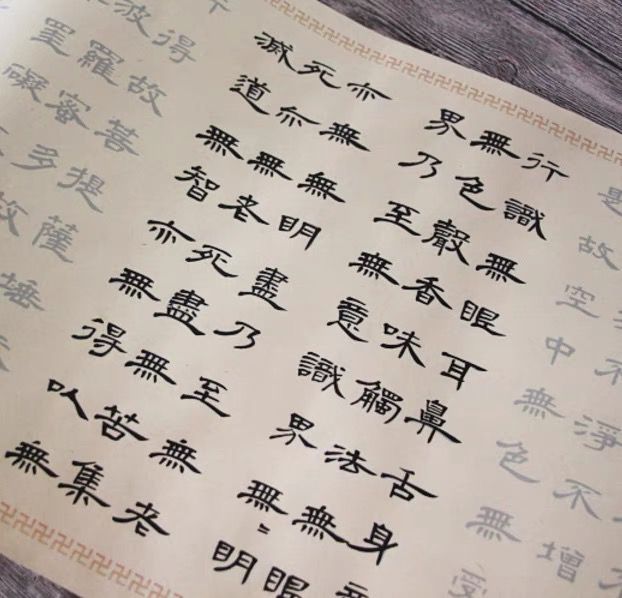 不淨不增
是故空中無色無受
行識無眼耳鼻舌身
無色聲香味觸法無眼
界乃至無意識界無〻明
亦無無明盡乃至無老
死亦無老死盡無苦集
滅道無智亦無得以無
得故菩提薩埵
波羅蜜多故
罣礙